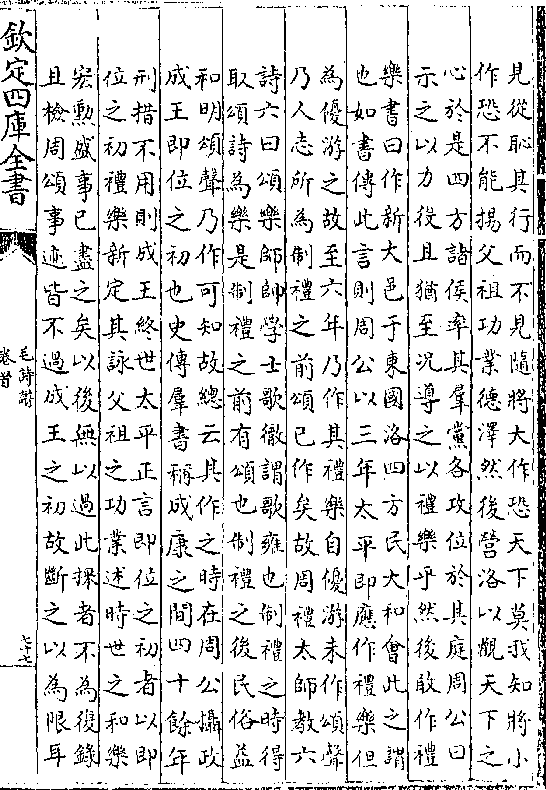 見從恥其行而不見隨將大作恐天下莫我知將小
作恐不能揚父祖功業德澤然後營洛以觀天下之
心於是四方諸侯率其羣黨各攻位於其庭周公曰
示之以力役且猶至況導之以禮樂乎然後敢作禮
樂書曰作新大邑于東國洛四方民大和會此之謂
也如書傳此言則周公以三年太平即應作禮樂但
為優游之故至六年乃作其禮樂自優游未作頌聲
乃人志所為制禮之前頌已作矣故周禮太師教六
詩六曰頌樂師帥學士歌徹謂歌雍也制禮之時得
取頌詩為樂是制禮之前有頌也制禮之後民俗益
和明頌聲乃作可知故總云其作之時在周公攝政
成王即位之初也史傳羣書稱成康之間四十餘年
刑措不用則成王終世太平正言即位之初者以即
位之初禮樂新定其詠父祖之功業述時世之和樂
宏勲盛事已盡之矣以後無以過此採者不為復録
且檢周頌事迹皆不過成王之初故斷之以為限耳
欽定四庫全書
毛詩譜
卷首
七十七